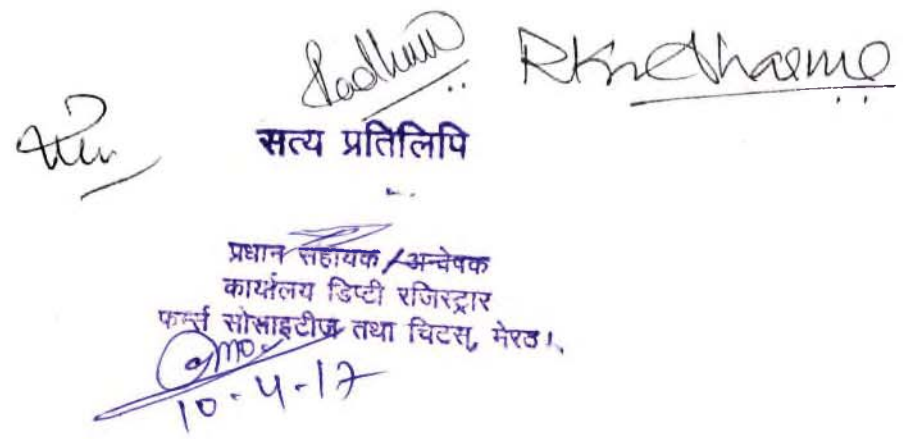 RKnSharma
सत्य प्रतिलिपि
प्रधान सहायक / अन्वेषक
कार्यालय डिप्टी रजिस्ट्रार
फर्म्स सोसाइटीज तथा चिटस्, मेरठ।
10-4-17